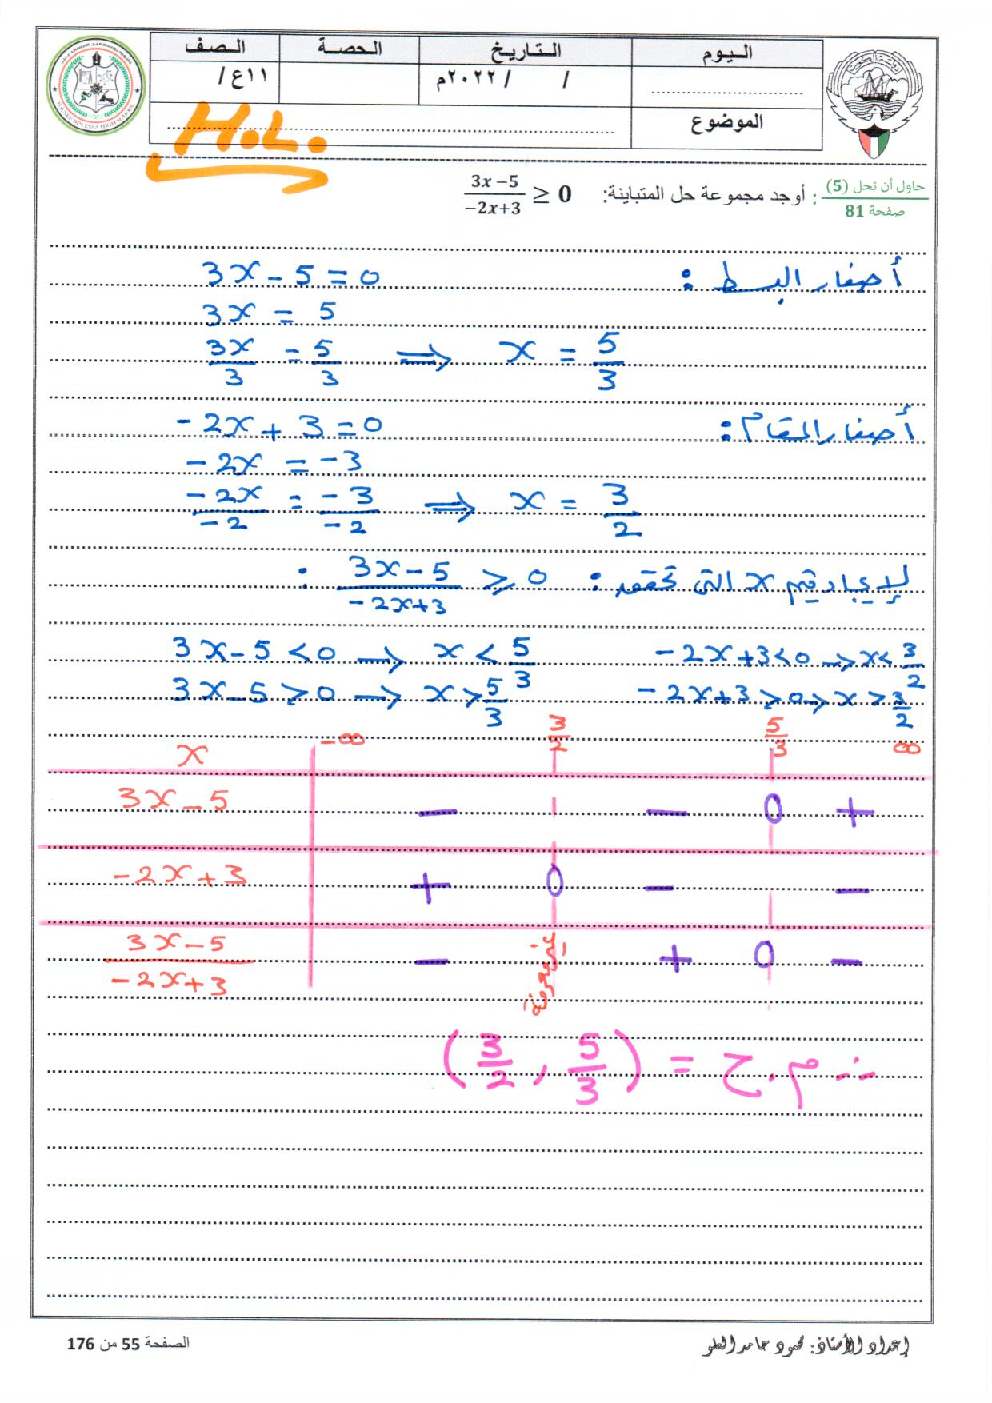 اليوم التاريخ الحصة الصف
/ / ٢٠٢٢م ١١ع /
الموضوع
H.L.
حاول أن تحل (5) صفحة 81 : أوجد مجموعة حل المتباينة: (3x −5)/(−2x+3) ≥ 0
أصفار البسط : 3x − 5 = 0
3x = 5
3x/3 = 5/3 ⟹ x = 5/3
أصفار المقام : − 2x + 3 = 0
− 2x = − 3
− 2x/− 2 = − 3/− 2 ⟹ x = 3/2
لإيجاد قيم x التي تحقق : (3x − 5)/(− 2x+3) ≥ 0 :
3x − 5 < 0 → x < 5/3 − 2x + 3 < 0 → x < 3/2
3x − 5 > 0 → x > 5/3 − 2x + 3 > 0 → x > 3/2
x −∞ 3/2 5/3 ∞
3x − 5 − − 0 +
− 2x + 3 + 0 − −
(3x − 5)/(− 2x+3) − غير معرفة + 0 −
∴ م.ح = (3/2 , 5/3)
الصفحة 55 من 176
إعداد الأستاذ: محمود حامد